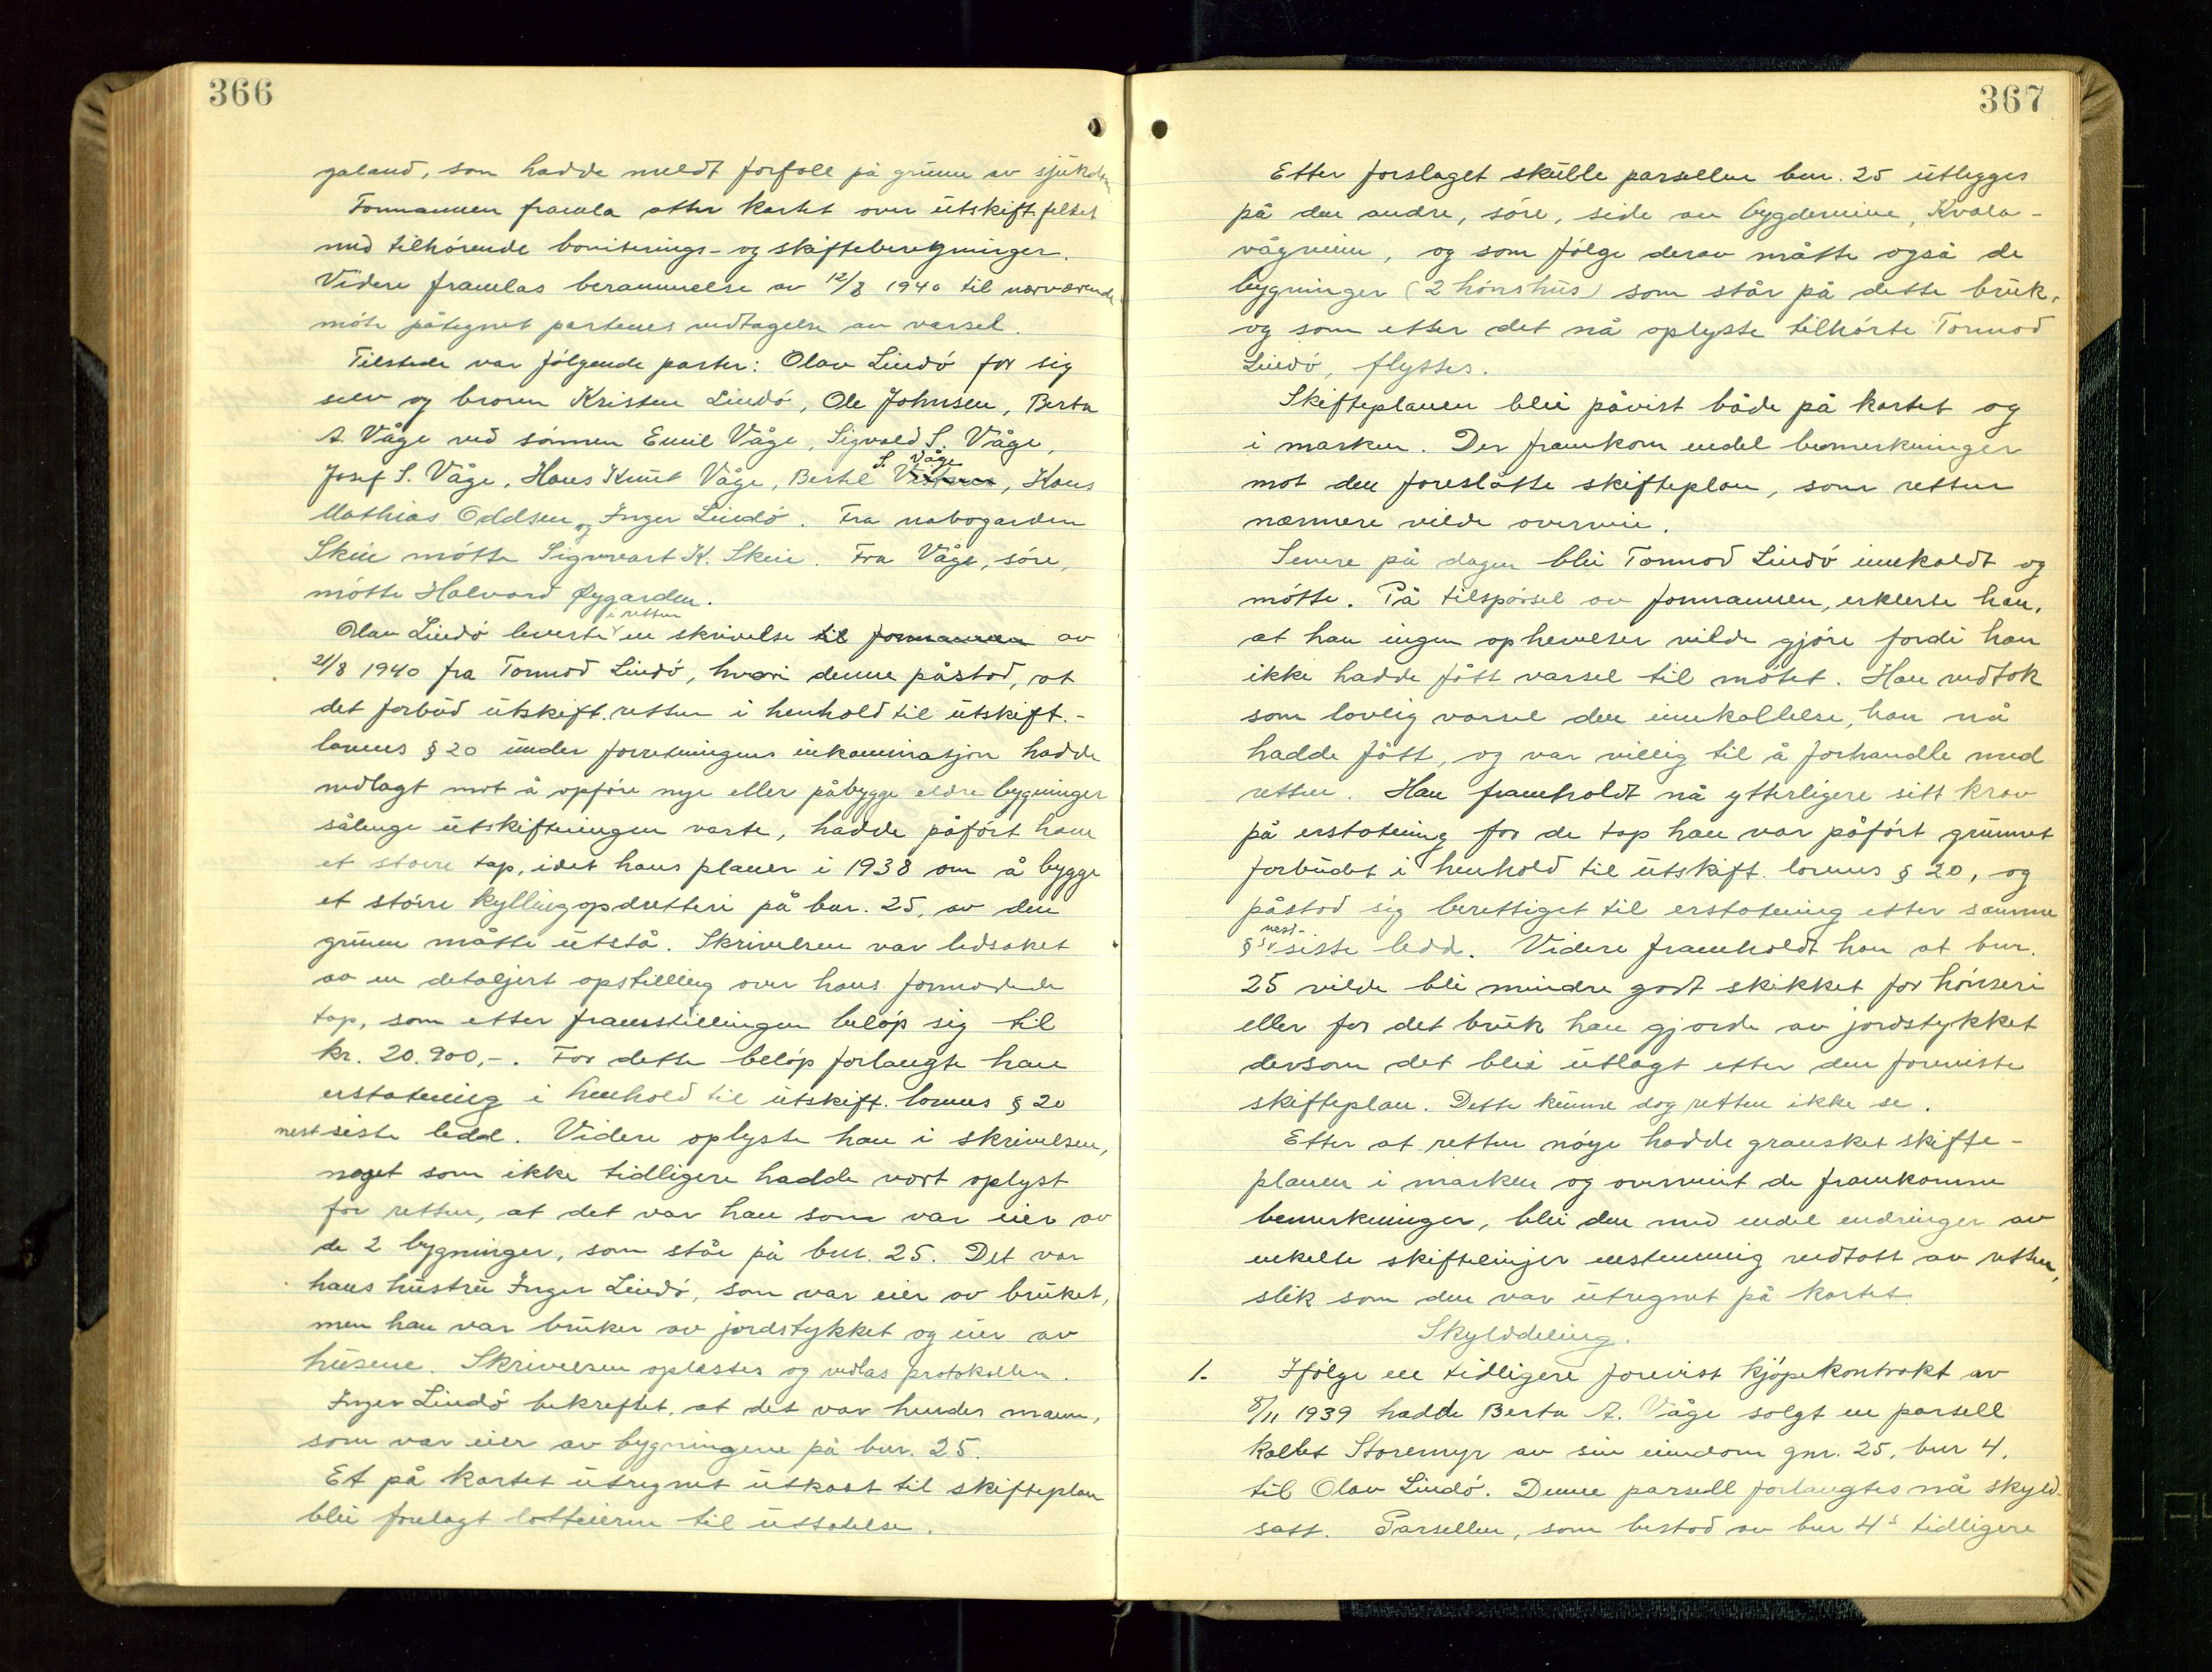 366
galand, som hadde meldt forfall på grunn av sjukdom
Formannen framla atter kartet over utskift.feltet
med tilhørende boniterings- og skifteberegninger.
Videre framlas berammelse av 12/8 1940 til nærværende
møte påtegnet partenes vedtagelse av varsel.
Tilstede var følgende parter: Olav Lindø for sig
selv og broren Kristen Lindø, Ole Johnsen, Berta
A. Våge ved sønnen Emil Våge, Sigvald S. Våge,
Josef S. Våge, Hans Knut Våge, Bertil S. Våge, Hans
Mathias Oddsen og Inger Lindø. Fra nabogarden
Skeie møtte Sigvart K. Skeie. Fra Våge, søre,
møtte Halvard Øygarden.
Olav Lindø leverte i retten en skrivelse til formannen av
21/8 1940 fra Tormod Lindø, hvori denne påstod, at
det forbud utskift.retten i henhold til utskift.-
lovens § 20 under forretningens inkaminasjon hadde
nedlagt mot å opføre nye eller påbygge eldre bygninger
sålenge utskiftningen varte, hadde påført ham
et større tap, idet hans planer i 1938 om å bygge
et større kyllingopdretteri på bnr. 25, av den
grunn måtte utstå. Skrivelsen var ledsaket
av en detaljert opstilling over hans formodede
tap, som etter fremstillingen beløp sig til
kr. 20.900,-. For dette beløp forlangte han
erstatning i henhold til utskift. lovens § 20
nest siste ledd. Videre oplyste han i skrivelsen,
noget som ikke tidligere hadde vært oplyst
for retten, at det var han som var eier av
de 2 bygninger, som står på bnr. 25. Det var
hans hustru Inger Lindø, som var eier av bruket,
men han var bruker av jordstykket og eier av
husene. Skrivelsen oplestes og vedlas protokollen.
Inger Lindø bekreftet, at det var hendes mann,
som var eier av bygningene på bnr. 25.
Et på kartet utregnet utkast til skifteplan
blei forelagt lotteierne til uttalelse.
367
Etter forslaget skulle parsellen bnr. 25 utlegges
på den andre, søre, side av bygdeveien, Kvala-
vågveien, og som følge derav måtte også de
bygninger (2 hønshus) som står på dette bruk,
og som etter det nå oplyste tilhørte Tormod
Lindø, flyttes.
Skifteplanen blei påvist både på kartet og
i marken. Der framkom endel bemerkninger
mot den foreslåtte skifteplan, som retten
nærmere vilde overveie.
Senere på dagen blei Tormod Lindø innkaldt og
møtte. På tilspørsel av formannen, erklærte han,
at han ingen ophevelser vilde gjøre fordi han
ikke hadde fått varsel til møtet. Han vedtok
som lovlig varsel den innkallelse, han nå
hadde fått, og var villig til å forhandle med
retten. Han framholdt nå ytterligere sitt krav
på erstatning for de tap han var påført grunnet
forbudet i henhold til utskift. lovens § 20, og
påstod sig berettiget til erstatning etter samme
§'s nest-siste ledd. Videre framholdt han at bnr.
25 vilde bli mindre godt skikket for hønseri
eller for det bruk han gjorde av jordstykket
dersom det blei utlagt etter den foreviste
skifteplan. Dette kunne dog retten ikke se.
Etter at retten nøye hadde gransket skifte-
planen i marken og overveiet de framkomne
bemerkninger, blei den med endel endringer av
enkelte skiftelinjer enstemmig vedtatt av retten,
slik som den var utregnet på kartet.
Skylddeling.
1. Ifølge en tidligere forevist kjøpekontrakt av
8/11 1939 hadde Berta A. Våge solgt en parsell
kallet Storemyr av sin eiendom gnr. 25, bnr 4,
til Olav Lindø. Denne parsell forlangtes nå skyld-
satt. Parsellen, som bestod av bnr 4's tidligere